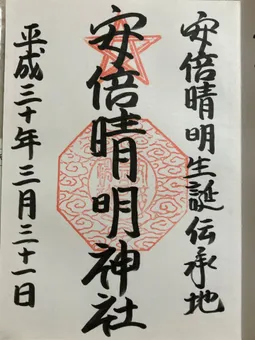 安倍晴明生誕伝承地
安倍晴明神社
平成三十年三月三十一日